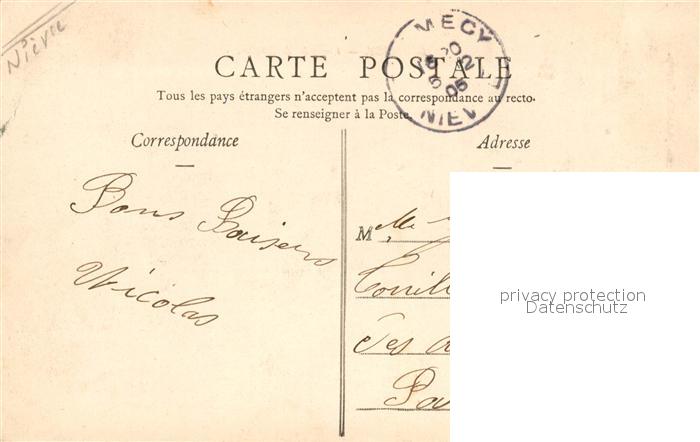 Nièvre
CARTE POSTALE
Tous les pays étrangers n'acceptent pas la correspondance au recto.
Se renseigner à la Poste.
MECY
05
NIEV
Correspondance
Adresse
Bons Baisers
Nicolas
M lle
privacy protection
Datenschutz